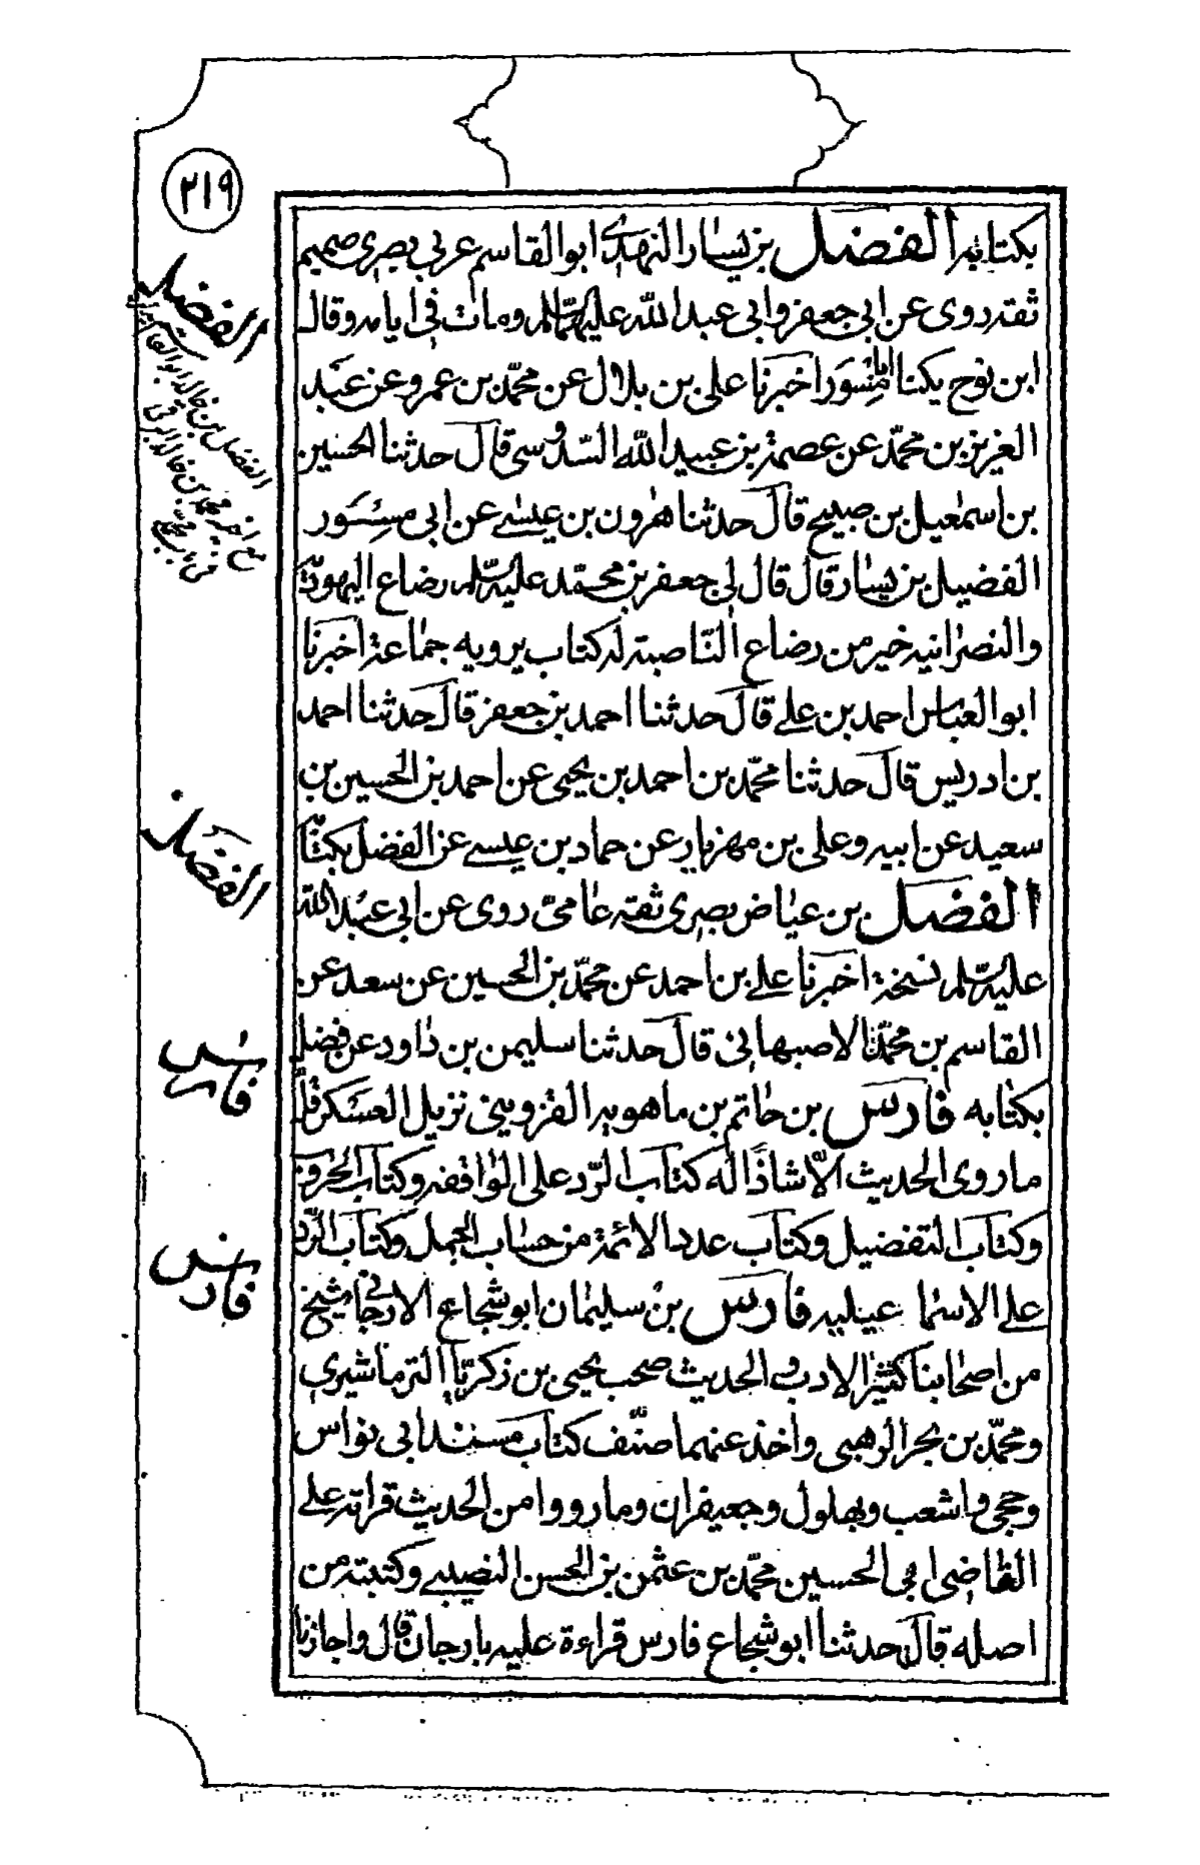 ٢١٩
بكتابه الفضل بن يسار النهدي ابو القاسم عربي بصري صميم
ثقة روى عن ابي جعفر وابي عبد الله عليهما السلم ومات في ايامه وقال
ابن نوح يكنا ابا مسور اخبرنا علي بن بلال عن محمّد بن عمرو عن عبد
العزيز بن محمّد عن عصمة بن عبيد الله السّدوسي قال حدثنا الحسين
بن اسمعيل بن صبيح قال حدثنا هرون بن عيسے عن ابي مسور
الفضيل بن يسار قال قال لي جعفر بن محمّد عليه السّلم رضاع اليهوديّة
والنصرانيه خير من رضاع النّاصبة له كتاب يرويه جماعة اخبرنا
ابو العباس احمد بن علے قال حدثنا احمد بن جعفر قال حدثنا احمد
بن ادريس قال حدثنا محمّد بن احمد بن يحيى عن احمد بن الحسين بن
سعيد عن ابيه وعلي بن مهزيار عن حماد بن عيسے عن الفضل بكتابه
الفضل بن عياض بصري ثقة عامي روى عن ابي عبد الله
عليه السّلم نسخة اخبرنا علے بن احمد عن محمّد بن الحسين عن سعد عن
القاسم بن محمّد الاصبهاني قال حدثنا سليمن بن داود عن فضل
بكتابه فارس بن حاتم بن ماهويه القزويني نزيل العسكر قلّ
ما روى الحديث الّا شاذًا له كتاب الرّد على الواقفه وكتاب الحروف
وكتاب التفضيل وكتاب عدد الائمة من حساب الجمل وكتاب الرّد
علے الاسماعيليه فارس بن سليمان ابو شجاع الارجاني شيخ
من اصحابنا كثير الادب والحديث صحب يحيى بن زكريّا الترماشيري
ومحمّد بن بحر الرهبي واخذ عنهما صنّف كتاب مسند ابي نواس
وجحى واشعب وبهلول وجعيفران وما رووا من الحديث قراته علے
القاضي ابي الحسين محمّد بن عثمن بن الحسن النصيبے وكتبته من
اصله قال حدثنا ابو شجاع فارس قراءة عليه بارجان قال واجازنا
الفضيل
الفضل بن خالد ابو القاسم
اخيه محمد بن خالد البرقي
الفضل
فارس
فارس